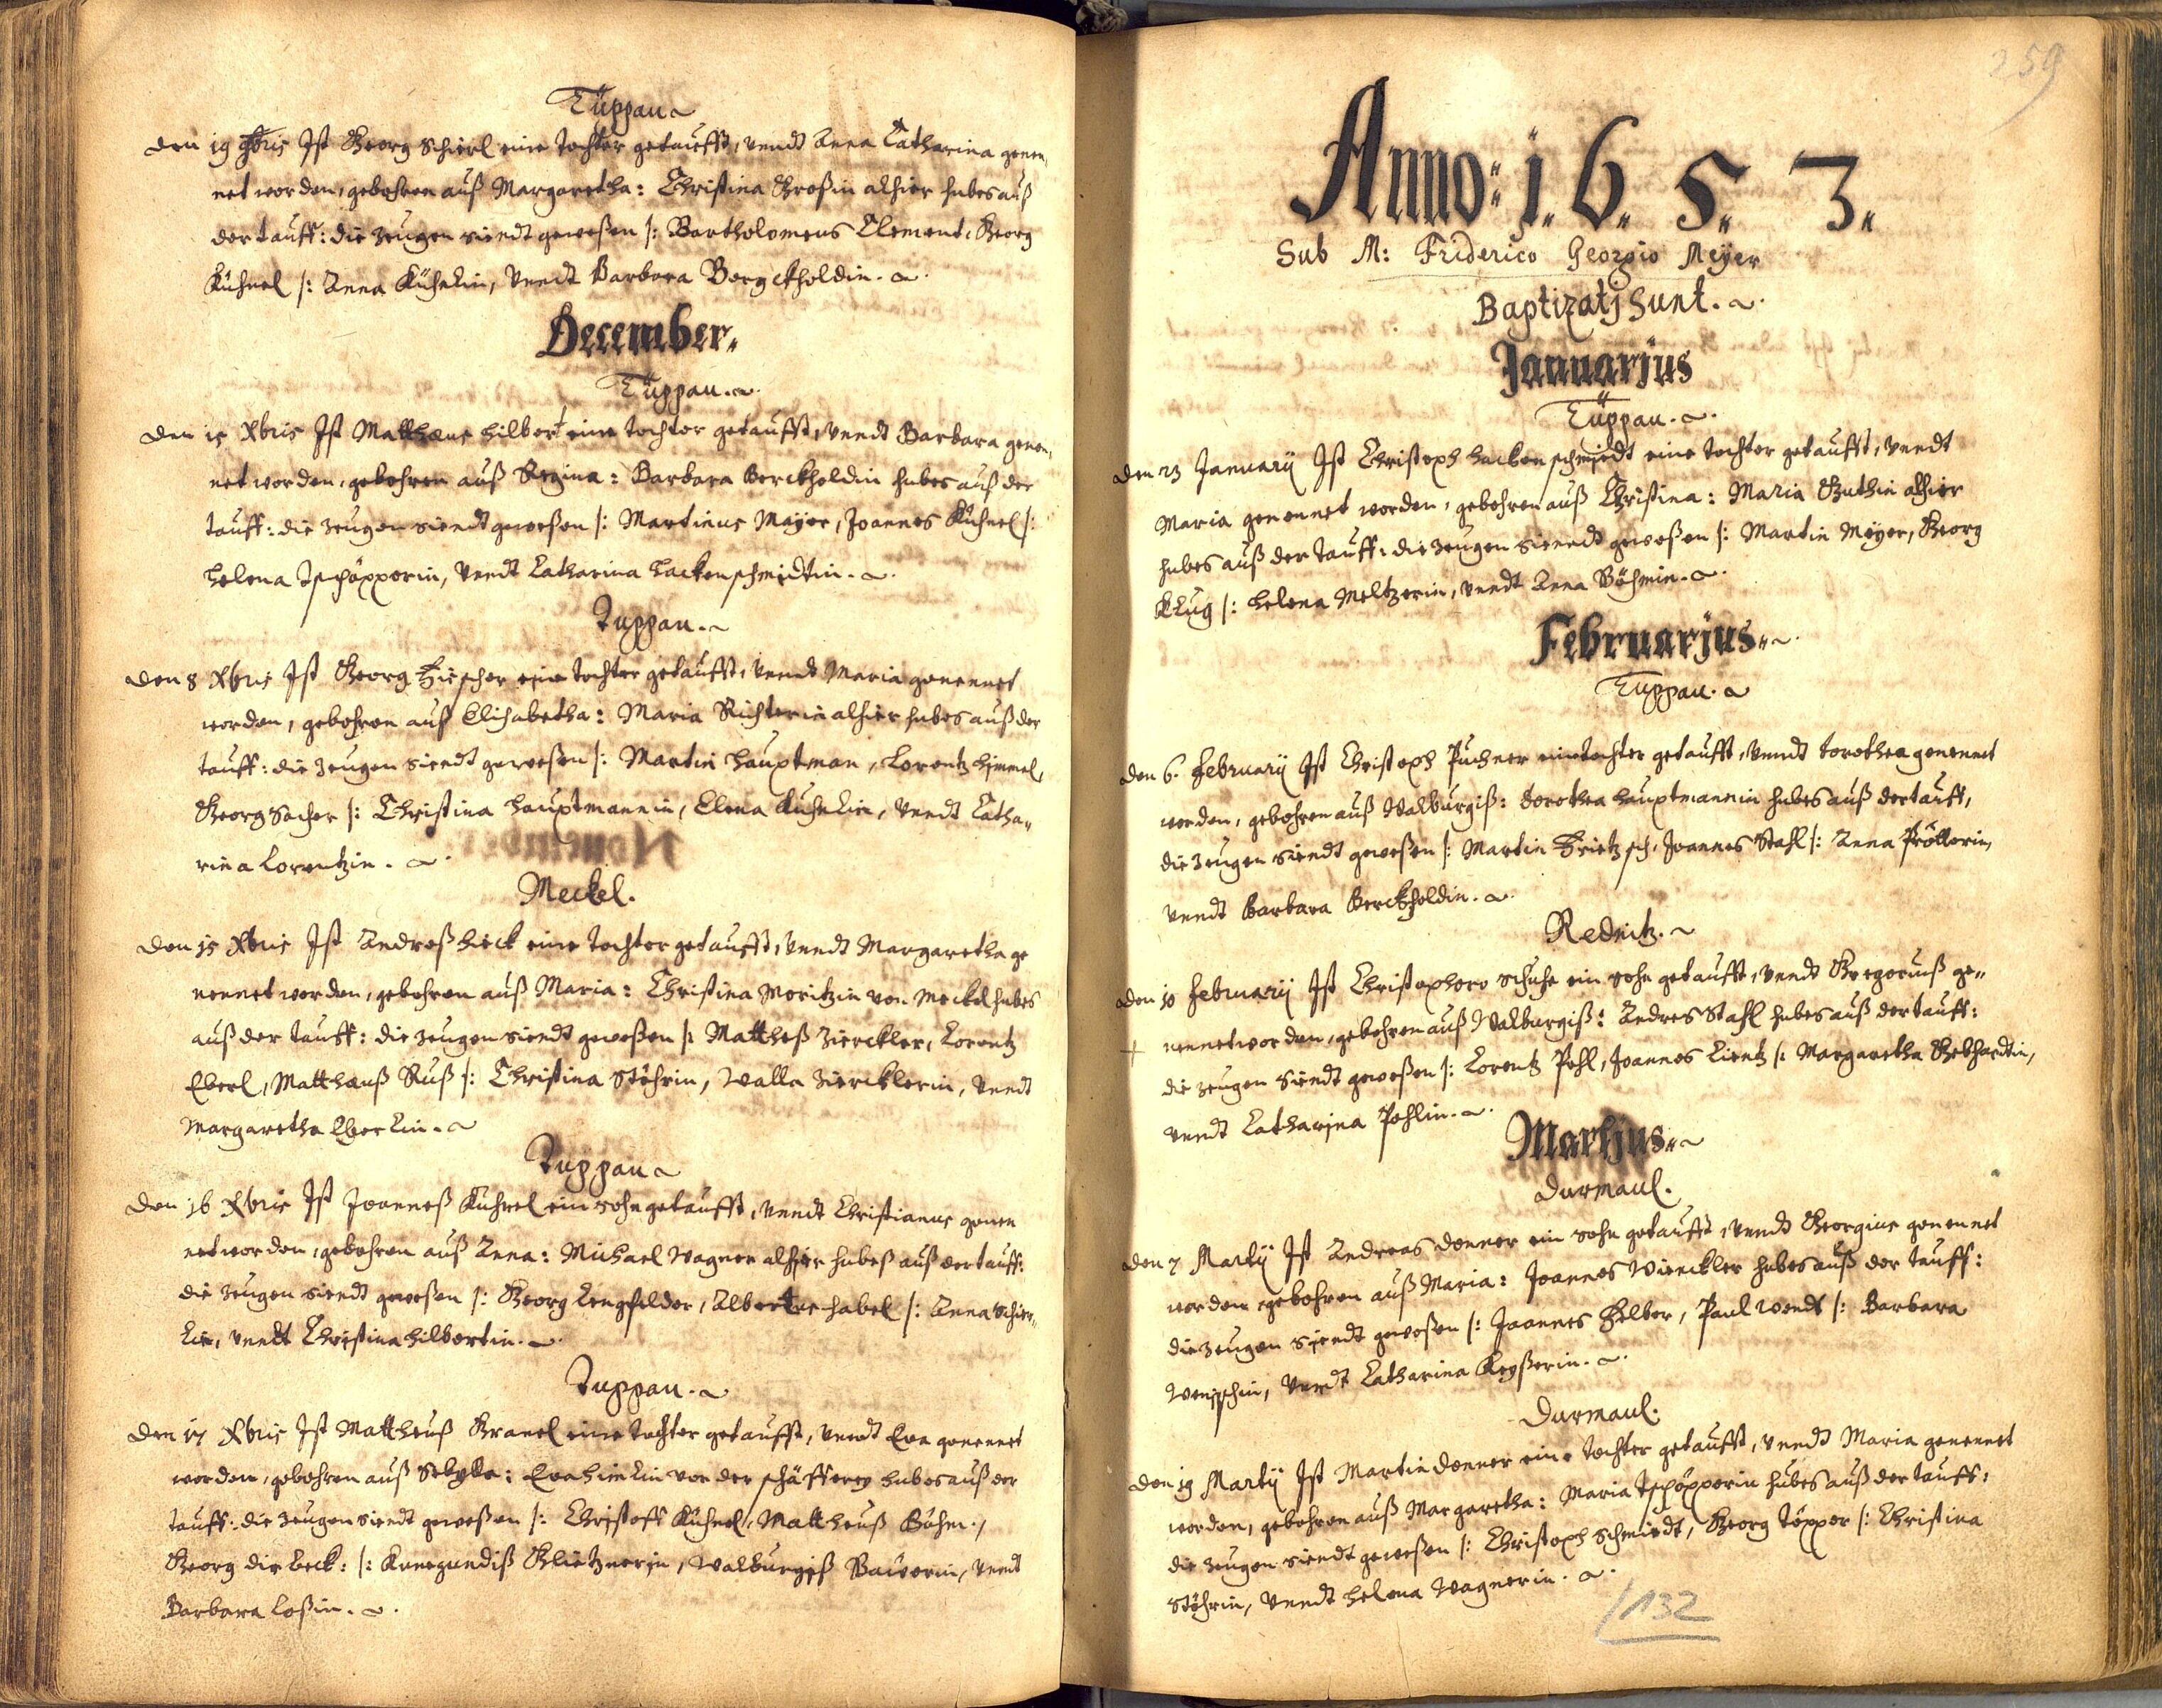 Tüppau
den 19 9bris Ist Georg Schierl eine tochter getaufft, vnndt Anna Catharina genen,
net worden, gebohren auß Margaretha: Christina Großin alhier hubes auß
der tauff: die zeugen siendt geweßen /: Bartholomeus Clement, Georg
Kühnel /: Anna Kühnlin, vnndt Barbara Bergkholdin.
December.
Tüppau.
den 15 Xbris Ist Matthæus hilbert eine tochter getaufft, vnndt Barbara genen,
net worden, gebohren auß Regina: Barbara Berckholdin hubes auß der
tauff: die zeugen siendt geweßen /: Martinus Mayer, Joannes Kühnel /:
helena Tschöpperin, vnndt Catharina hackenschmidtin.
Tuppau.
den 8 Xbris Ist Georg Fischer eine tochter getaufft, vnndt Maria genennet
worden, gebohren auß Elisabetha: Maria Richterin alhier hubes auß der
tauff: die zeugen siendt geweßen /: Martin hauptman, Lorentz himmel,
Georg Sacher /: Christina hauptmannin, Elena Kuhnlin, vnndt Catha„
rina Lorentzin.
Meckel.
den 15 Xbris Ist Andreß hieck eine tochter getaufft, vnndt Margaretha ge
nennet worden, gebohren auß Maria: Christina Moritzin von Meckel hubes
auß der tauff: die zeugen siendt geweßen /: Mattheß Zierckler, Lorentz
Eberl, Matthæuß Ruß /: Christina Stöhrin, Walla Ziercklerin, vnndt
Margaretha Eberlin.
Tuppau
den 16 Xbris Ist Joanneß Kuhnel ein sohn getaufft, vnndt Christianus genen
net worden, gebohren auß Anna: Michael Wagner alhier hubeß auß der tauff:
die zeugen siendt geweßen /: Georg Lengfelder, Albertus habel /: Anna Schier„
lin, vnndt Christina hilbertin.
Tuppau.
den 17 Xbris Ist Mattheuß Granel eine tochter getaufft, vnndt Eva genennet
worden, gebohren auß Sebylla: Eva himlin von der schäfferey hubes auß der
tauff: die zeugen siendt geweßen /: Christoff Kühnel, Mattheuß Böhm,
Georg dirbeck: /: Kunegundiß Glietznerin, Walburgiß Bauerin, vnndt
Barbara Loßin.
259
Anno: 1. 6. 5. 3.
Sub M: Friderico Georgio Meÿer
Baptizatj sunt.
Januarjus
Tüppau.
den 23 Januarij Ist Christoph hackenschmiedt eine tochter getaufft, vnndt
Maria genennet worden, gebohren auß Christina: Maria Guthin alhier
hubes auß der tauff: die zeugen siendt geweßen /: Martin Meyer, Georg
Klug /: helena Meltzerin, vnndt Anna Böhmin.
Februarjus.
Tuppau.
den 6. Februarij Ist Christoph Puchner ein tochter getaufft, vnndt torothea genennet
worden, gebohren auß Walburgiß: dorothea hauptmannin hubes auß der tauff,
die zeugen siendt geweßen /: Martin Frietzsch, Joannes Stahl /: Anna Pröllerin,
vnndt Barbara Berckholdin.
Rednitz.
den 10 Februarij Ist Christophoro Schuhe ein sohn getaufft, vnndt Gregoriuß ge„
nennet worden, gebohren auß Walburgiß: Andres Stahl hubes auß der tauff:
die zeugen siendt geweßen /: Lorentz Pohl, Joannes Lientz /: Margaretha Gebhardtin,
vnndt Catharina Pohlin.
Martjus.
Durmaul.
den 7 Martij Ist Andreas donner ein sohn getaufft, vnndt Georgius genennet
worden gebohren auß Maria: Joannes Winckler hubes auß der tauff:
die zeugen siendt geweßen /: Joannes Felber, Paul Wendt /: Barbara
Wenschin, vnndt Catharina Keyßerin.
Durmaul.
den 19 Martij Ist Martin donner eine tochter getaufft, vnndt Maria genennet
worden, gebohren auß Margaretha: Maria Tschöpperin hubes auß der tauff:
die zeugen siendt geweßen /: Christoph Schmiedt, Georg Töpper /: Christina
Stöhrin, vnndt helena Wagnerin.
132